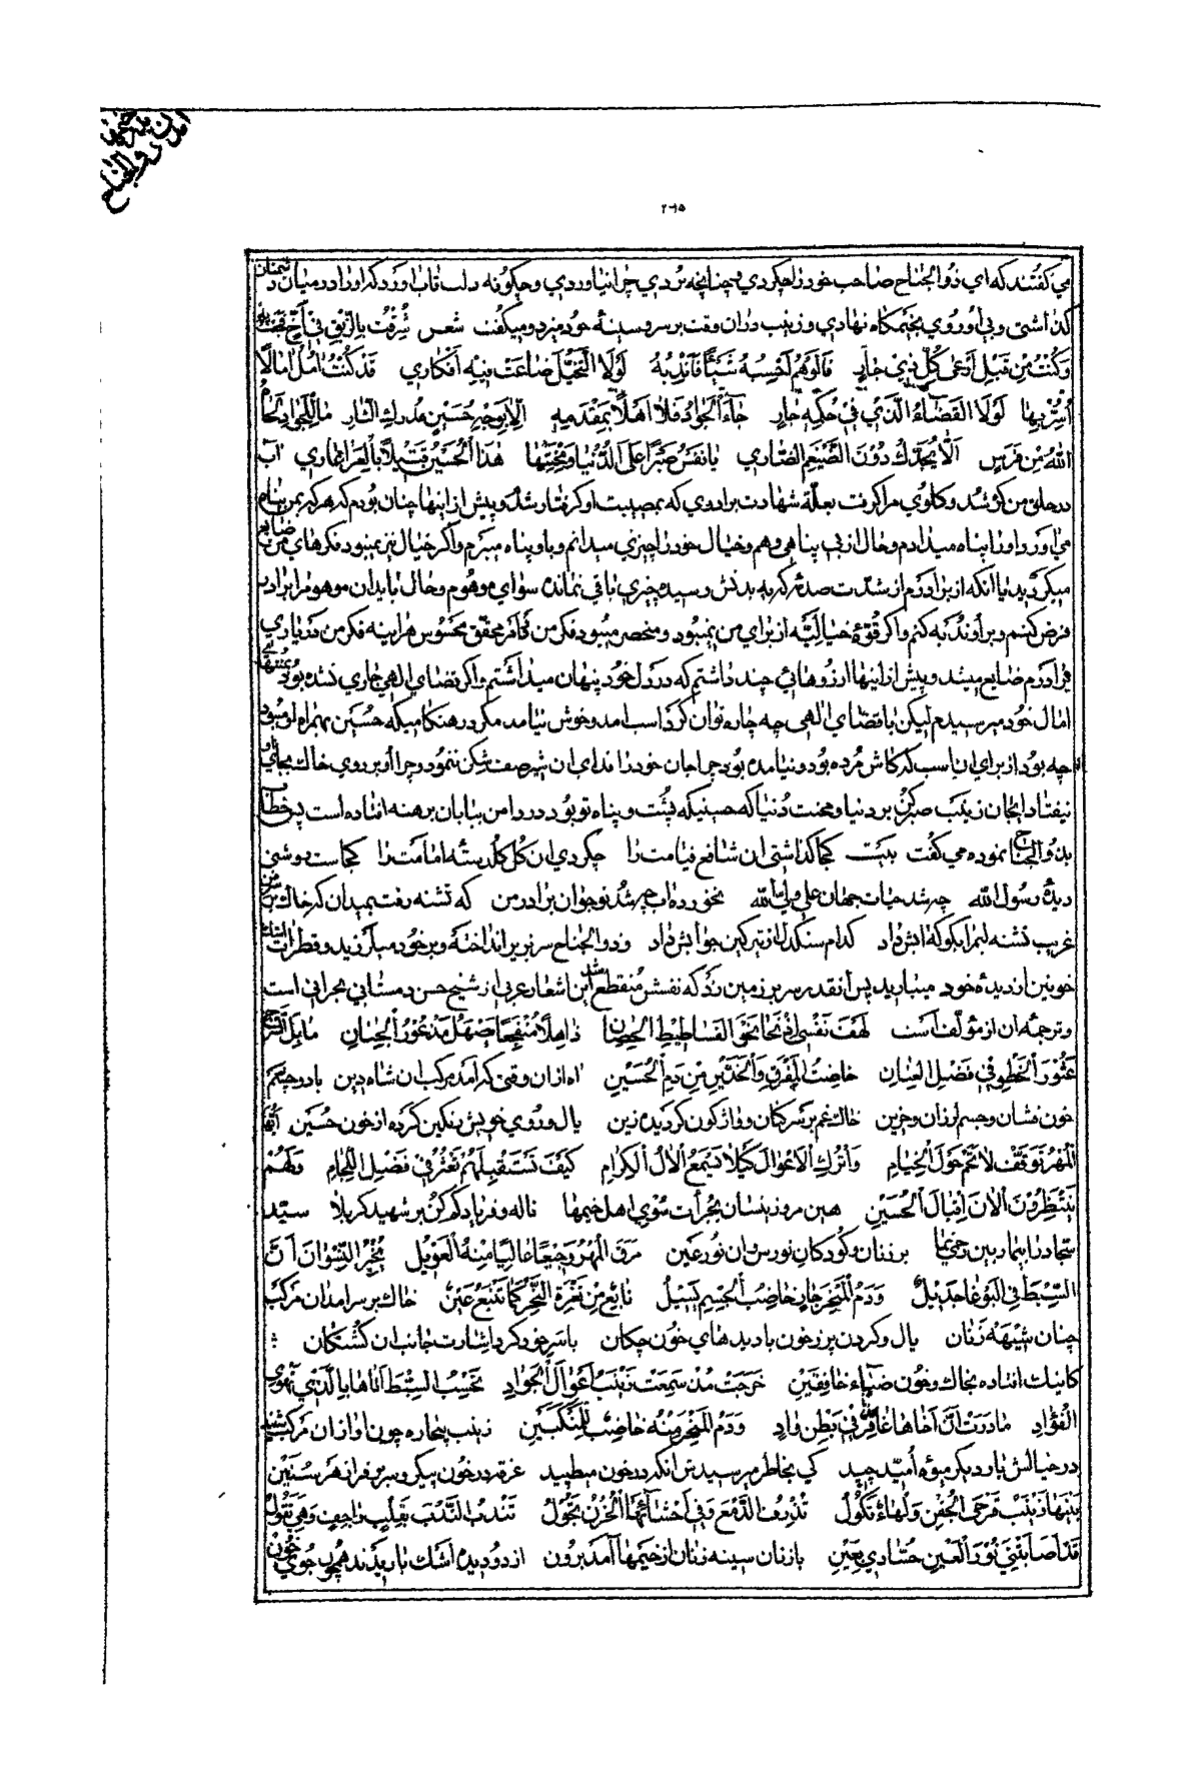 ۲۶۵
می گفتند که ای ذو الجناح صاحب خود را چکردی و چنانچه بردی چرا نیاوردی و چگونه دلت تاب آورد که او را در میان دشمنان
گذاشتی و بی او روی بخیمگاه نهادی و زینب در آن وقت بر سر و سینه خود میزد و میگفت شعر شرقت بالریق فی اخ فجعت به
وکنت من قبل ارعی کل ذی جار فالوهم احسبه شیئا فاندبه لولا التخیل ضاعت فیه افکاری قد کنت آمل امالا
اسر بها لولا القضاء الذی فی حکمه جار جاء الجواد فلا اهلا بمقدمه الا بوجه حسین مدرک الثار ما للجواد لحاه
الله من فرس الا یجدل دون الضیغم الضاری یا نفس صبرا علی الدنیا ومحنتها هذا الحسین قتیلا بالعرا عاری آب
در حلق من گره شد و گلوی مرا گرفت بعلة شهادت برادری که بمصیبت او گرفتار شدم و پیش از اینها چنان بودم که هر که بمن پناه
می آورد او را پناه میدادم و حال از بی پناهی وهم و خیال خود را چیزی میدانم و باو پناه میبرم و اگر خیال نیز نمیبود فکرهای من ضایع
میگردید یا آنکه از برادرم از شدت صدمه که به بدنش رسیده چیزی باقی نمانده سوای موهوم و حال باید آن موهوم را برادر
فرض کنم و بر او ندبه کنم و اگر قوّة خیالیّه از برای من نمیبود و منحصر میبود فکر من در محقق محسوس هر اینه فکر من در یاری
برادرم ضایع میشد و پیش از اینها ارزوهائی چند داشتم که در دل خود پنهان میداشتم و اگر قضای الهی جاری نشده بود بمنتهای
امال خود میرسیدم لیکن با قضای الهی چه چاره توان کرد اسب امد و خوش نیامد مگر در هنگامیکه حسین بهمراه او میبود
چه بود از برای آن اسب که کاش مرده بود و نیامده بود چرا جان خود را فدای ان شیر صف شکن ننمود و چرا او بر روی خاک بجای او
نیفتاد ایجان زینب صبر کن بر دنیا و محنت دنیا که حسینیکه پشت و پناه تو بود در دامن بیابان برهنه افتاده است پس خطاب
بذو الجناح نموده می گفت بیت کجا گذاشتی ان شافع قیامت را چکردی ان گل گلدسته امامت را کجاست روشنی
دیدهٔ رسول الله چه شد حیات جهان علی ولی الله نخورده اب چه شد نوجوان برادر من که تشنه رفت بمیدان که خاک بر سر من
غریب تشنه لبم را بگو که ابش داد کدام سنگدل از تیر کین جوابش داد و ذو الجناح سر بزیر انداخته و بر خود میلرزید و قطرات اشک
خونین از دیدهٔ خود میبارید پس انقدر سر بر زمین زد که نفسش منقطع شد این اشعار عربی از شیخ حسن دمستانی بحرانی است
و ترجمه ان از مؤلف است لهف نفسی اذ نحا نحو الفساطیط الحصان ذاهلا منفجعا صهل مذعور الجنان مایل السرج
عثور الخطو فی فضل العنان خاضب المفرق والخدین من دم الحسین اه از ان وقتی که آمد مرکب ان شاه دین با دو چشم
خون فشان و جسم لرزان و حزین خاک غم بر سر کنان و واژگون گردیده زین یال و روی خویش رنگین کرده از خون حسین ایها
المهر توقف لا تحم حول الخیام واترک الاعوال کیلا یسمع الآل الکرام کیف تستقبلهم تعثر فی فضل اللجام وهم
ینتظرون الان اقبال الحسین هین مرو زینسان بجرأت سوی اهل خیمها ناله و فریاد کم کن بر شهید کربلا سیّد
سجاد را بیمار بین در خیمها بر زنان و کودکان نورس و ان نور عین مرق المهر وجیعا عالیا منه العویل یخبر النسوان ان
السبط فی البوغا جدیل ودم المنحر جار خاضب الجسم یسیل نابع من ثغرة النحر کما تنبع عین خاک بر سر امد ان مرکب
چنان شیهه زنان یال و گردن پر ز خون با دیدهای خون چکان با سر خود کرد اشارت جانب ان کشتگان :
کاینک افتاده بخاک و خون ضیاء خافقین خرجت مذ سمعت زینب اعوال الجواد تحسب السبط اتاها بالذی تهوی
الفؤاد ما درت ان اخاها عافر فی بطن واد ودم المنحر منه خاضب للمنکبین زینب بیچاره چون اواز ان مرکب شنید
در خیالش بار دیگر میوه امید چید کی بخاطر میرسیدش انکه در خون میطپید غرقه در خون پیکر و سر بر فراز هر سنین
بینها زینب قرحی الجفن ولهاء تکول تذرف الدمع وفی احشائها الحزن یجول تندب الندب بقلب واجف وهی تقول
قد اصابتنی نور العین حسادی بعین با زنان سینه زنان از خیمها آمد برون از دو دیده اشک باریدند همچون جوی خون